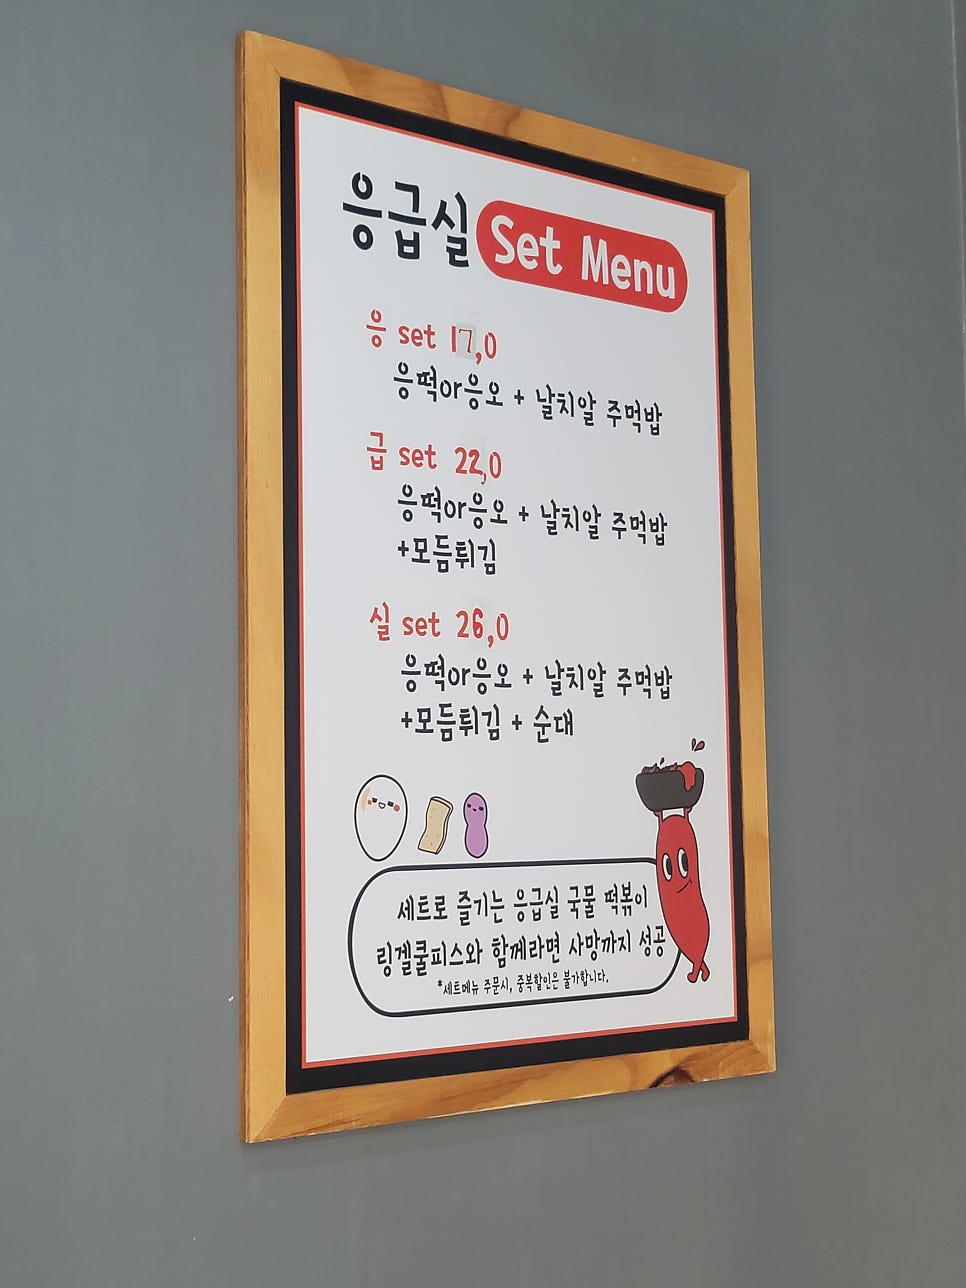 응급실 Set Menu
응 set 17,0
응떡or응오 + 날치알 주먹밥
급 set 22,0
응떡or응오 + 날치알 주먹밥
+모듬튀김
실 set 26,0
응떡or응오 + 날치알 주먹밥
+모듬튀김 + 순대
세트로 즐기는 응급실 국물 떡볶이
링겔쿨피스와 함께라면 사망까지 성공
*세트메뉴 주문시, 중복할인은 불가합니다.